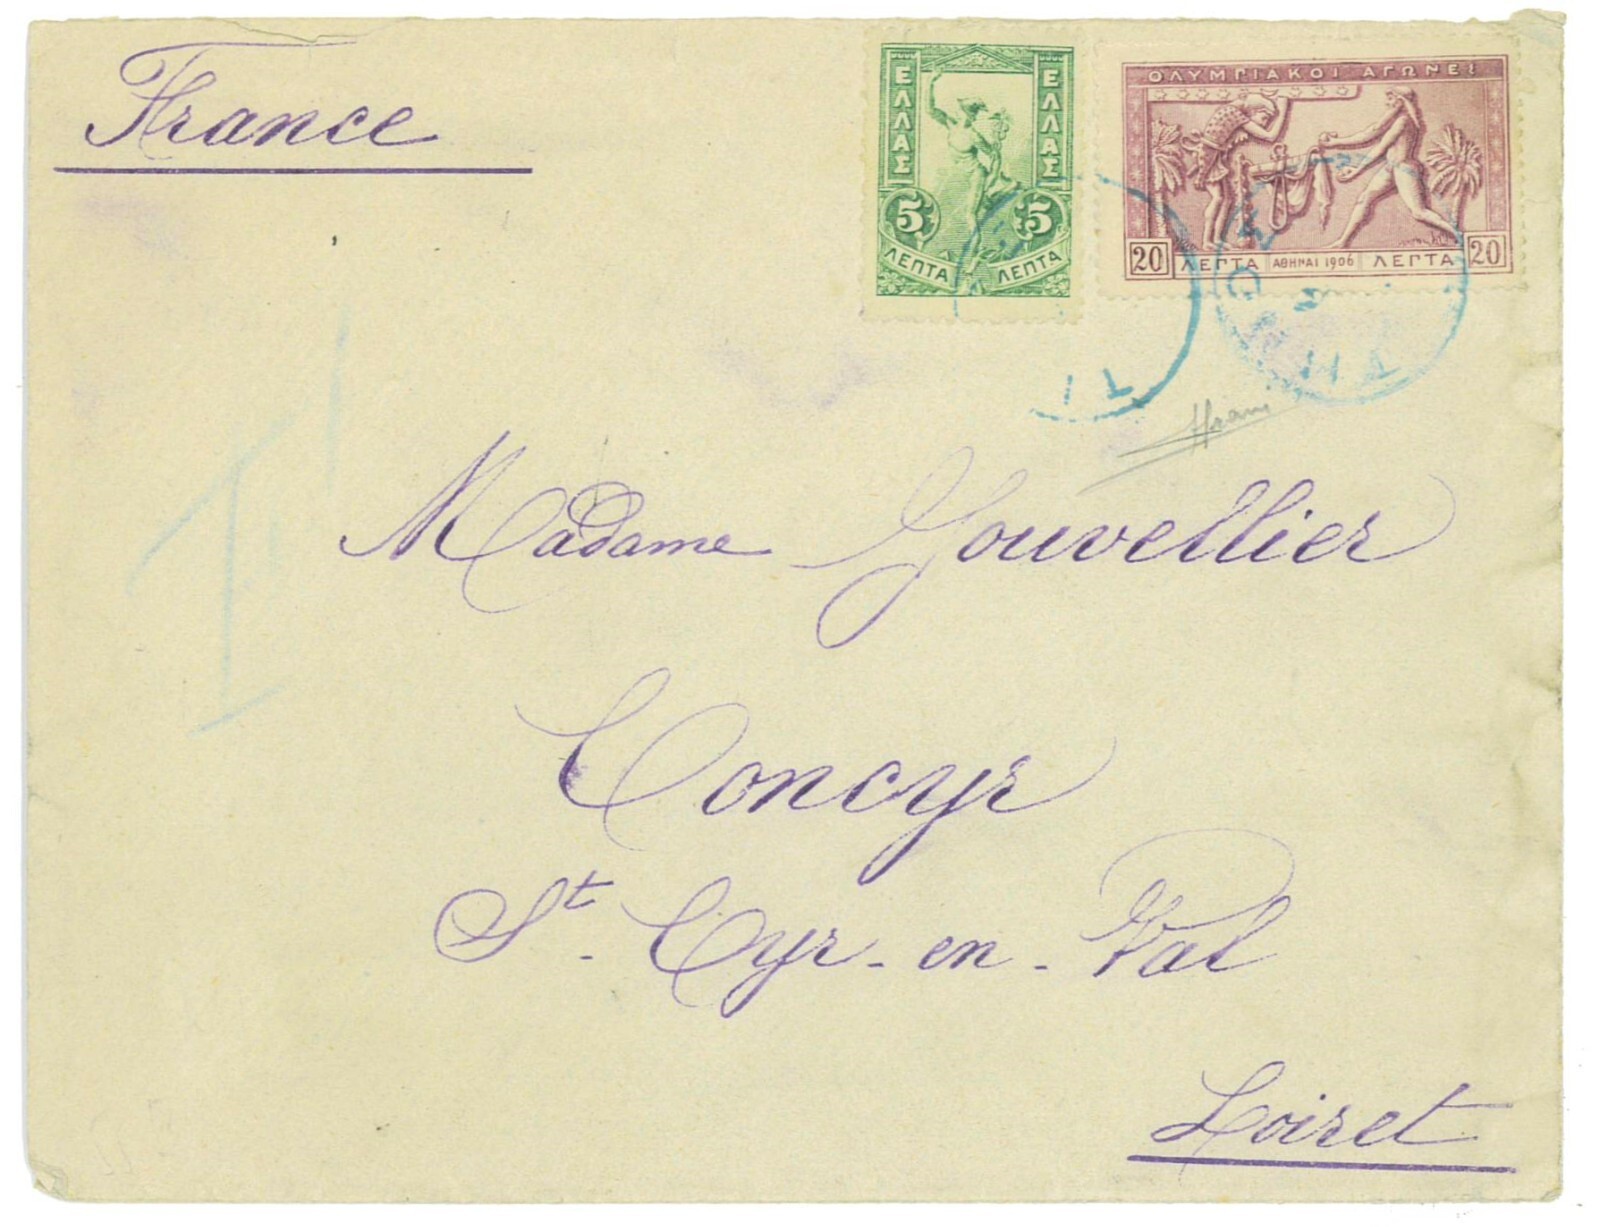 France
ΕΛΛΑΣ ΕΛΛΑΣ
5 5
ΛΕΠΤΑ ΛΕΠΤΑ
ΟΛΥΜΠΙΑΚΟΙ ΑΓΩΝΕΣ
20 ΛΕΠΤΑ ΑΘΗΝΑΙ 1906 ΛΕΠΤΑ 20
Madame Gouvellier
Concyr
St. Cyr-en-Val
Loiret